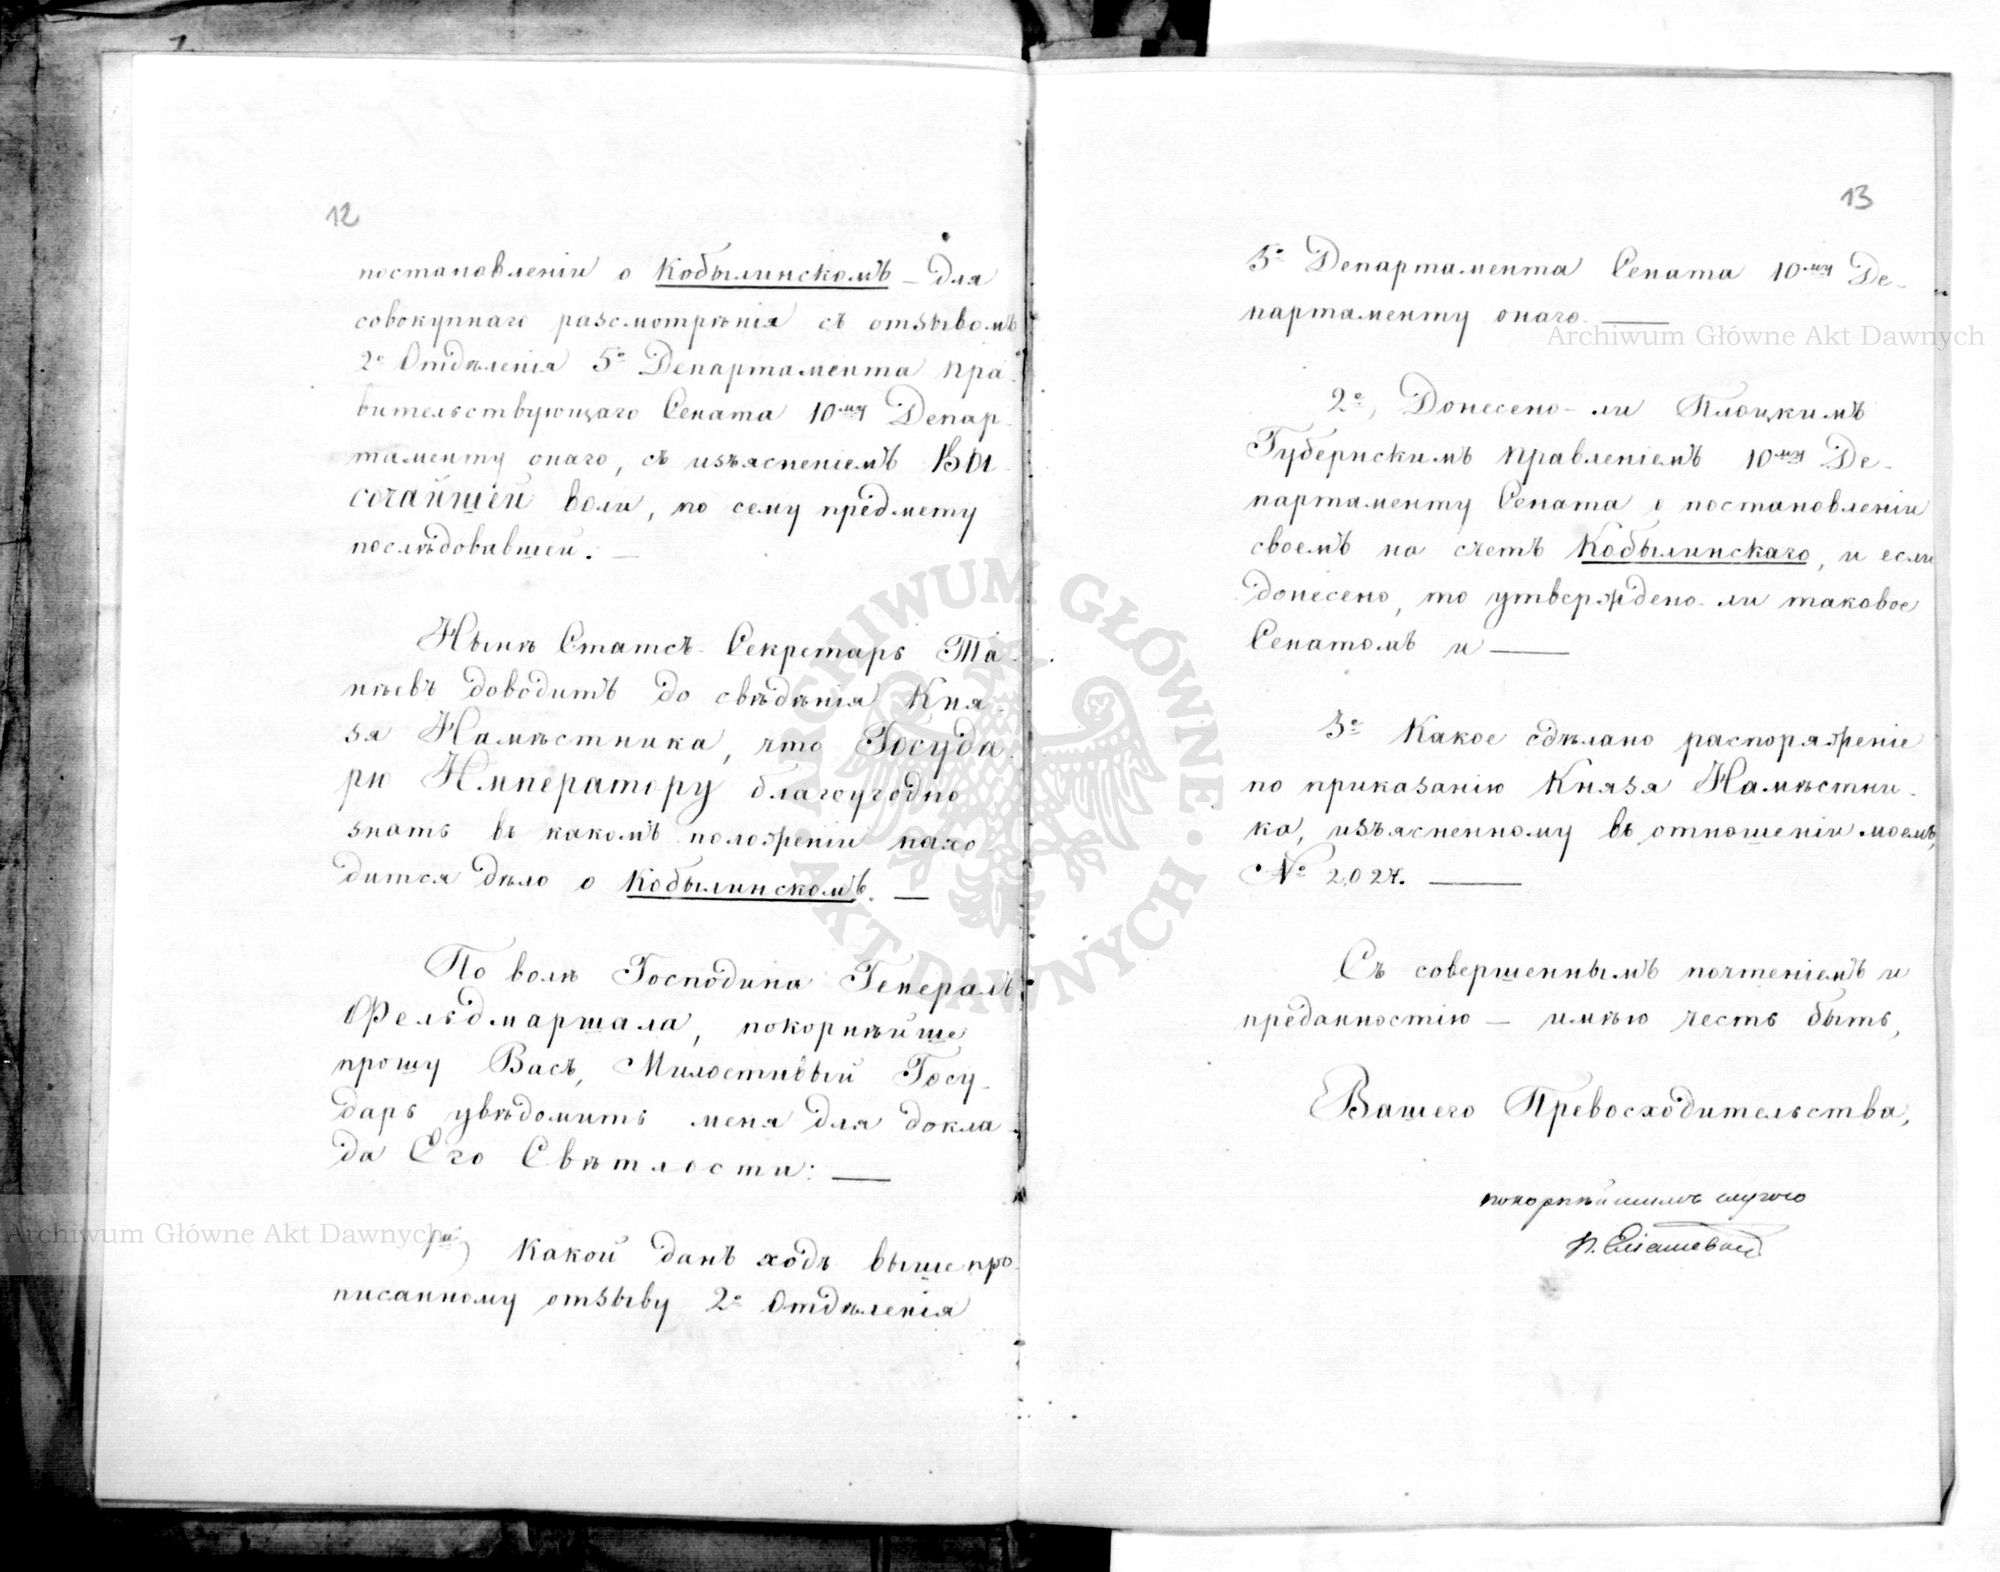 12
постановленіи о Кобылинскомъ – для
совокупнаго разсмотрѣнія съ отзывомъ
2º Отдѣленія 5º Департамента Пра-
вительствующаго Сената 10му Депар-
таменту онаго, съ изъясненіемъ ВЫ-
СОЧАЙШЕЙ воли, по сему предмету
послѣдовавшей. —
Нынѣ Статсъ-Секретарь Та-
нѣевъ доводитъ до свѣдѣнія Кня-
зя Намѣстника, что Госуда-
рю Императору благоугодно
знать въ какомъ положеніи нахо-
дится дѣло о Кобылинскомъ. —
По волѣ Господина Генералъ
Фельдмаршала, покорнѣйше
прошу Васъ, Милостивый Госу-
дарь увѣдомить меня для докла-
да Его Свѣтлости: —
1º) Какой данъ ходъ вышепро-
писанному отзыву 2º Отдѣленія
13
5º Департамента Сената 10му Де-
партаменту онаго. —
2º, Донесено-ли Плоцкимъ
Губернскимъ Правленіемъ 10му Де-
партаменту Сената о постановленіи
своемъ на счетъ Кобылинскаго, и если
донесено, то утверждено-ли таковое
Сенатомъ и —
3º Какое сдѣлано распоряженіе
по приказанію Князя Намѣстни-
ка, изъясненному въ отношеніи моемъ,
№ 2027. —
Съ совершеннымъ почтеніемъ и
преданностію – имѣю честь быть,
Вашего Превосходительства,
покорнѣйшимъ слугою
Archiwum Główne Akt Dawnych
Archiwum Główne Akt Dawnych
ARCHIWUM GŁÓWNE · AKT DAWNYCH ·